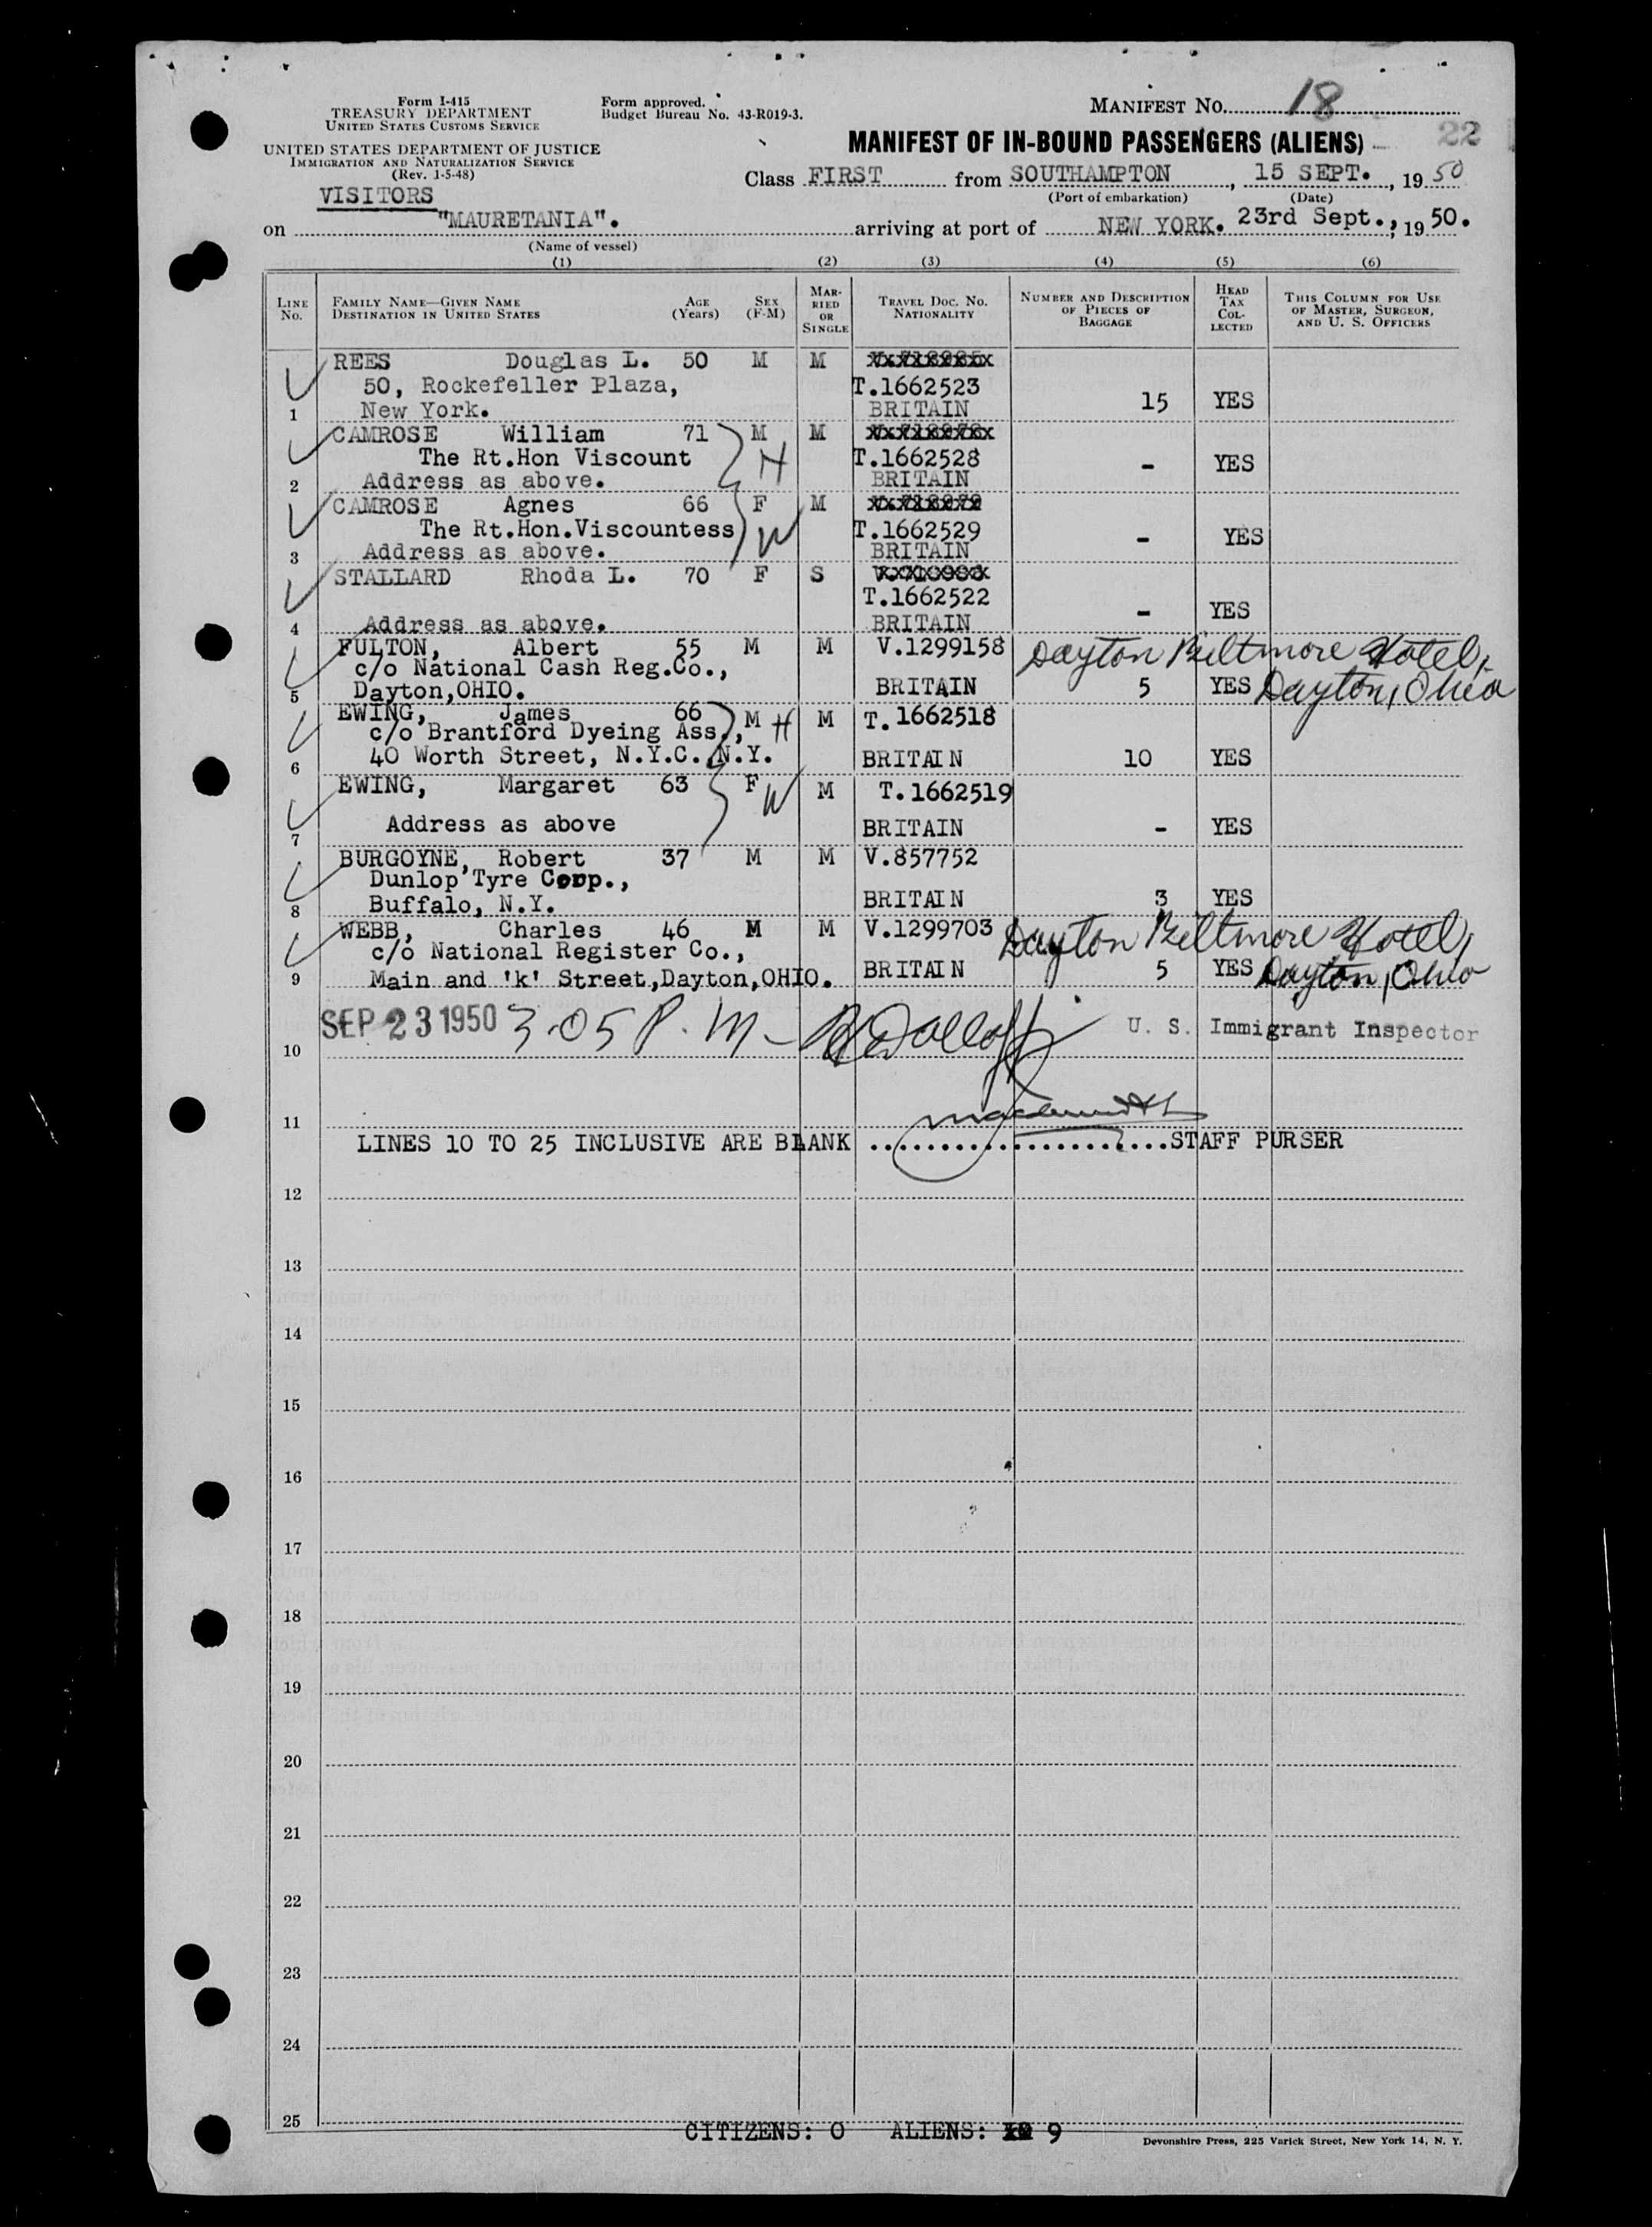 Form I-415
TREASURY DEPARTMENT
UNITED STATES CUSTOMS SERVICE
UNITED STATES DEPARTMENT OF JUSTICE
IMMIGRATION AND NATURALIZATION SERVICE
(Rev. 1-5-48)
VISITORS
Form approved.
Budget Bureau No. 43-R019-3.
MANIFEST NO. 18
MANIFEST OF IN-BOUND PASSENGERS (ALIENS) 22
Class FIRST from SOUTHAMPTON, 15 SEPT., 1950
(Port of embarkation) (Date)
on "MAURETANIA". arriving at port of NEW YORK. 23rd Sept., 1950.
(Name of vessel)
(1) (2) (3) (4) (5) (6)
LINE NO. FAMILY NAME—GIVEN NAME DESTINATION IN UNITED STATES AGE (Years) SEX (F-M) MARRIED OR SINGLE TRAVEL DOC. NO. NATIONALITY NUMBER AND DESCRIPTION OF PIECES OF BAGGAGE HEAD TAX COLLECTED THIS COLUMN FOR USE OF MASTER, SURGEON, AND U. S. OFFICERS
REES Douglas L. 50 M M
50, Rockefeller Plaza, T.1662523
1 New York. BRITAIN 15 YES
CAMROSE William 71 M M
The Rt.Hon Viscount H T.1662528
2 Address as above. BRITAIN - YES
CAMROSE Agnes 66 F M
The Rt.Hon.Viscountess W T.1662529
3 Address as above. BRITAIN - YES
STALLARD Rhoda L. 70 F S
T.1662522
4 Address as above. BRITAIN - YES
FULTON, Albert 55 M M V.1299158 Dayton Biltmore Hotel,
c/o National Cash Reg.Co.,
5 Dayton,OHIO. BRITAIN 5 YES Dayton, Ohio
EWING, James 66 M H M T.1662518
c/o Brantford Dyeing Ass.,
6 40 Worth Street, N.Y.C. N.Y. BRITAIN 10 YES
EWING, Margaret 63 F W M T.1662519
7 Address as above BRITAIN - YES
BURGOYNE, Robert 37 M M V.857752
Dunlop Tyre Corp.,
8 Buffalo, N.Y. BRITAIN 3 YES
WEBB, Charles 46 M M V.1299703 Dayton Biltmore Hotel,
c/o National Register Co.,
9 Main and 'k' Street,Dayton,OHIO. BRITAIN 5 YES Dayton, Ohio
SEP 23 1950 3.05 P.M - U. S. Immigrant Inspector
10
11
LINES 10 TO 25 INCLUSIVE ARE BLANK ......................STAFF PURSER
12
13
14
15
16
17
18
19
20
21
22
23
24
25
CITIZENS: 0 ALIENS: 9
Devonshire Press, 225 Varick Street, New York 14, N. Y.